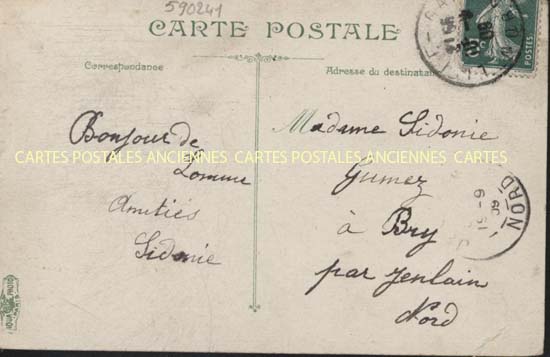 590241
CARTE POSTALE
Correspondance
Adresse du destinata
POSTES
Bonjour de
Lomme
Amitiés
Sidonie
Madame Sidonie
Gumez
à Bry
par Jenlain
Nord
CARTES POSTALES ANCIENNES CARTES POSTALES ANCIENNES CARTES POSTALES ANCIENNES
NORD